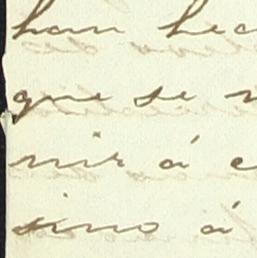 han hec
que se
nir á
sino á